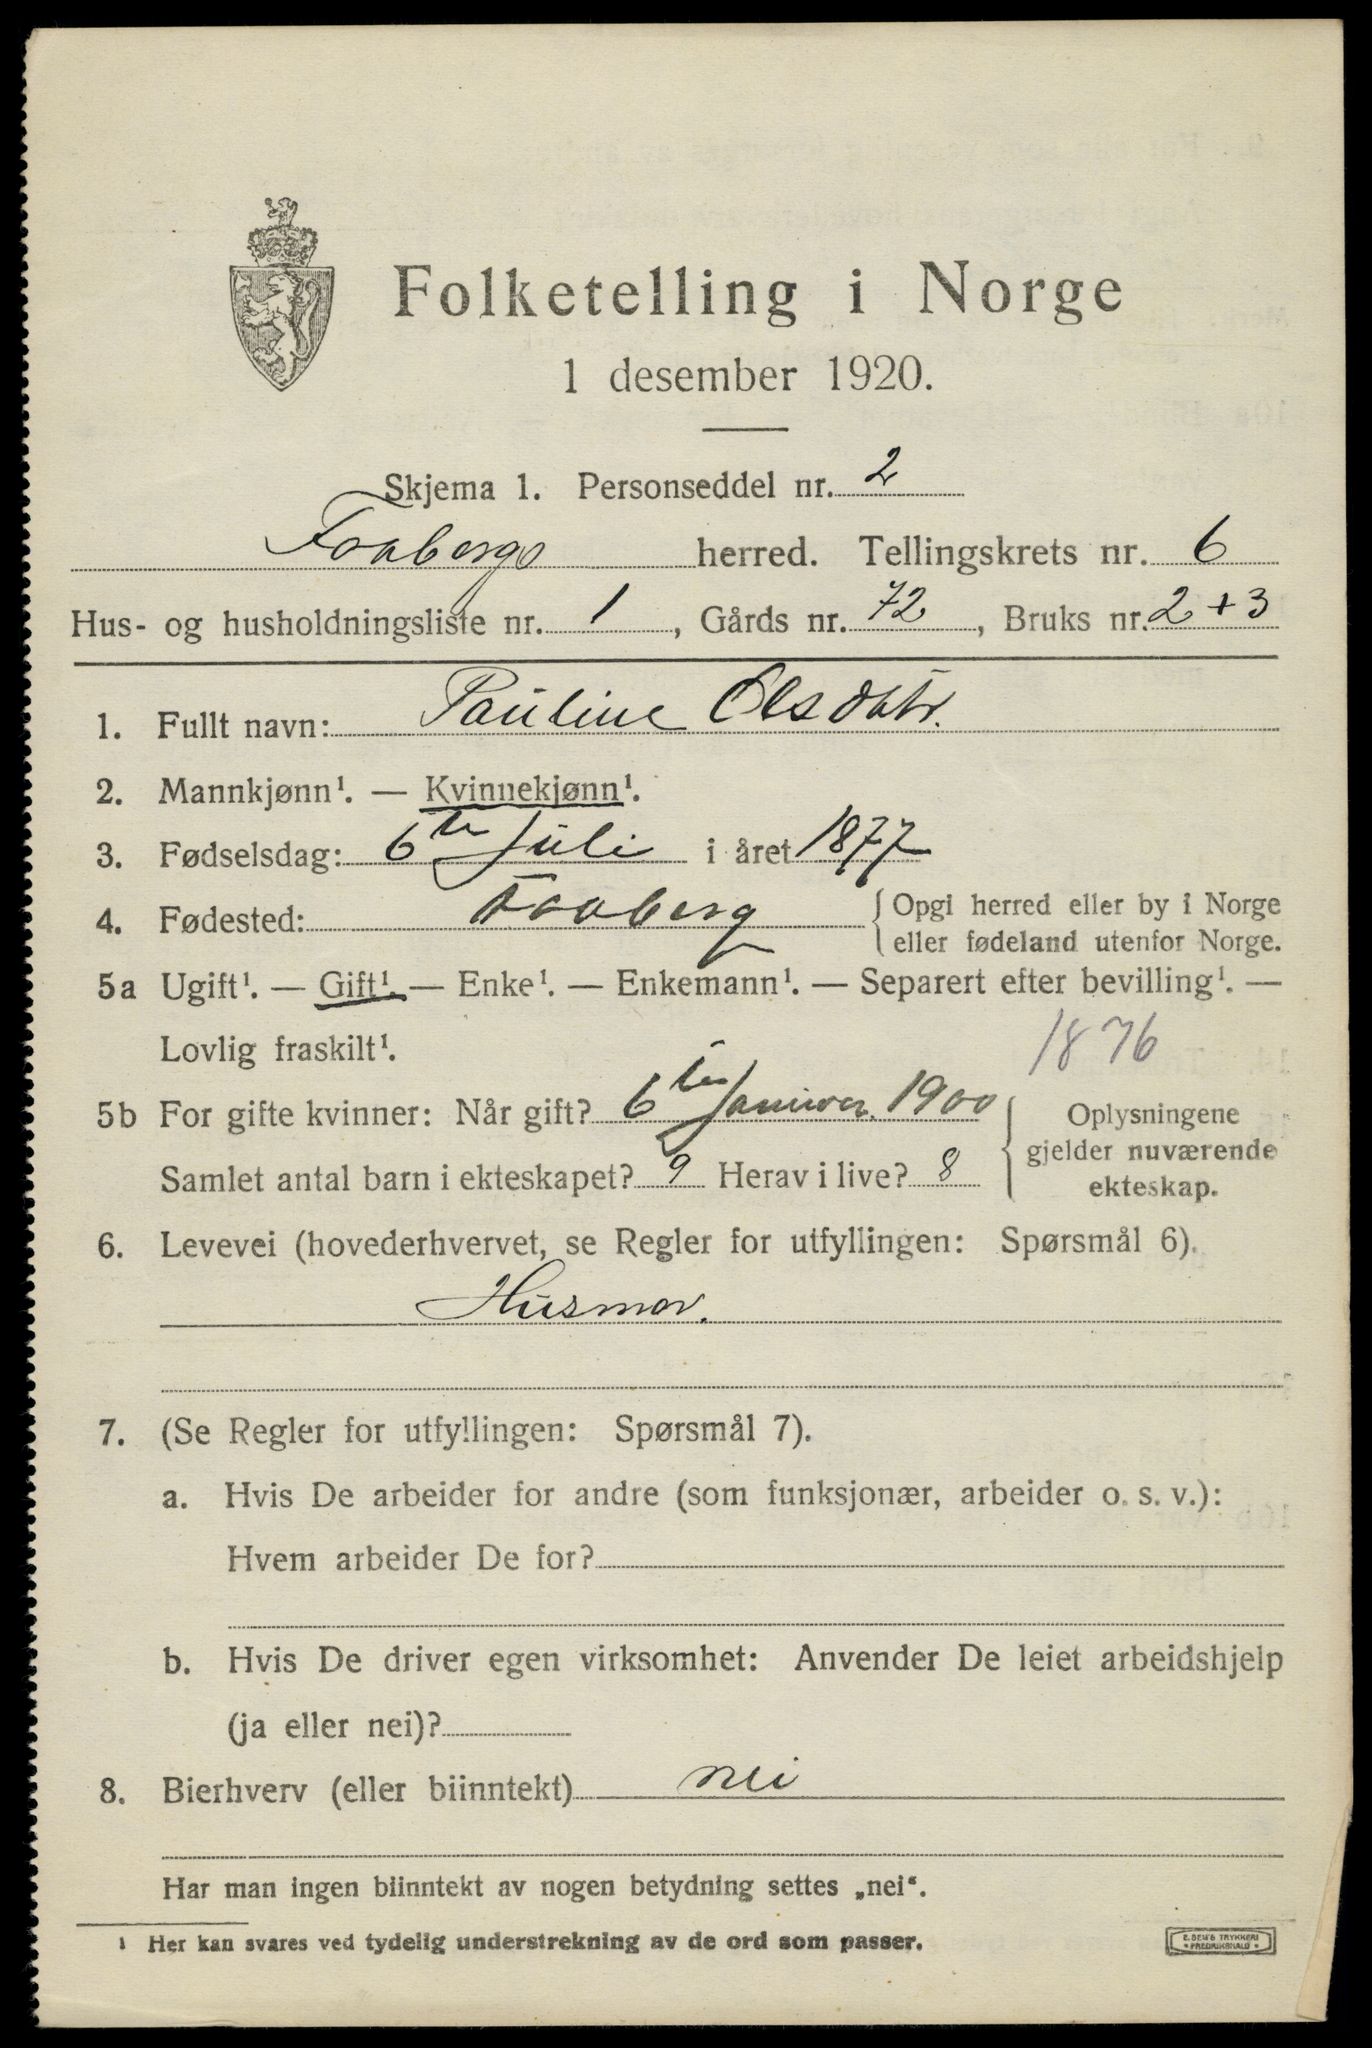 Folketelling i Norge
1 desember 1920.
Skjema 1. Personseddel nr. 2
Faabergs herred. Tellingskrets nr. 6
Hus- og husholdningsliste nr. 1, Gårds nr. 72, Bruks nr. 2 + 3
1. Fullt navn: Pauline Olsdatr.
2. Mannkjønn¹. — Kvinnekjønn¹.
3. Fødselsdag: 6te Juli i året 1877
4. Fødested: Faaberg { Opgi herred eller by i Norge
eller fødeland utenfor Norge.
5a Ugift¹. — Gift¹. — Enke¹. — Enkemann¹. — Separert efter bevilling¹. —
Lovlig fraskilt¹.
1876
5b For gifte kvinner: Når gift? 6te Januar. 1900 { Oplysningene
gjelder nuværende
Samlet antal barn i ekteskapet? 9 Herav i live? 8 ekteskap.
6. Levevei (hovederhvervet, se Regler for utfyllingen: Spørsmål 6).
Husmor.
7. (Se Regler for utfyllingen: Spørsmål 7).
a. Hvis De arbeider for andre (som funksjonær, arbeider o. s. v.):
Hvem arbeider De for?
b. Hvis De driver egen virksomhet: Anvender De leiet arbeidshjelp
(ja eller nei)?
8. Bierhverv (eller biinntekt) nei
Har man ingen biinntekt av nogen betydning settes „nei“.
¹ Her kan svares ved tydelig understrekning av de ord som passer.
E. SEM'S TRYKKERI
FREDRIKSHALD